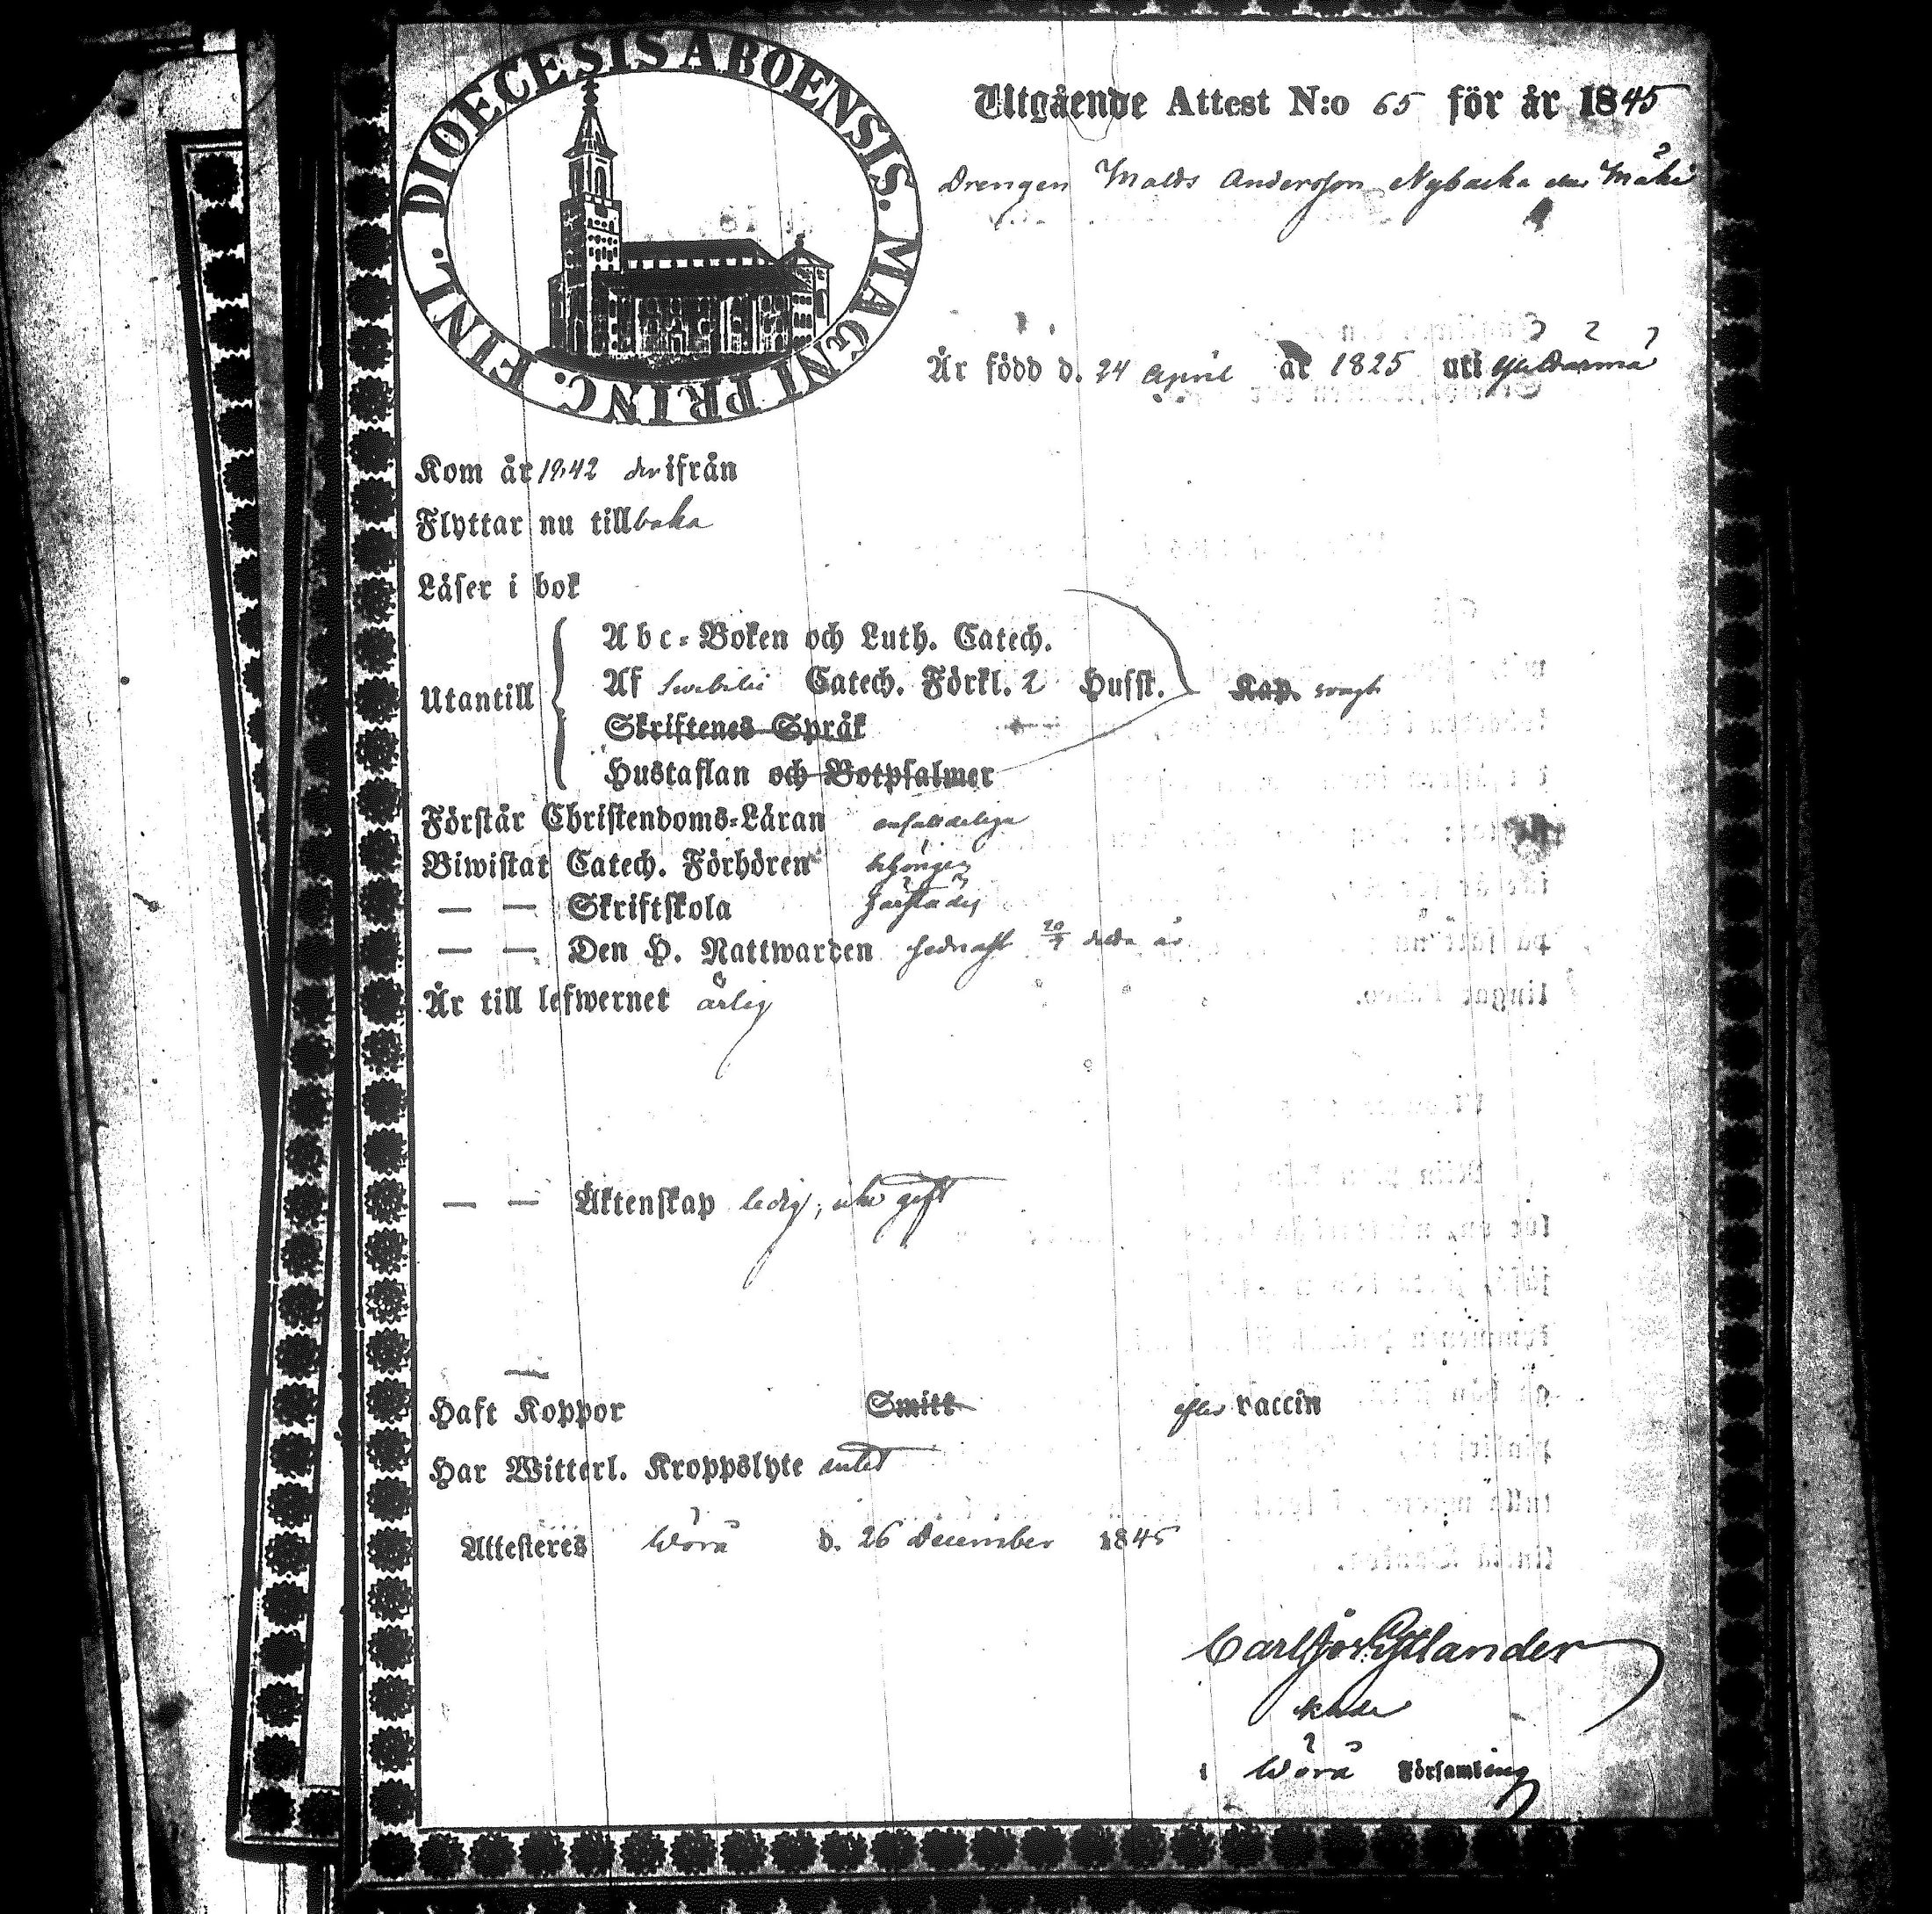 DIOECESIS ABOENSIS. MAGNI PRINC. FINL.
Utgående Attest N:o 65 för år 1845
Drengen Matts Andersson Nybacka eller Mäki
Är född d. 24 April år 1825 uti Ylistarma
Kom år 1842 derifrån
Flyttar nu tillbaka
Läser i bok
Utantill
Abc-Boken och Luth. Catech.
Af Swebilii Catech. Förkl. 2 Husst. Kap. svagt
Skriftenes Språk
Hustaflan och Botpsalmer
Förstår Christendoms-Läran enfaldeligen
Biwistat Catech. Förhören behörigen
— — Skriftskola härstädes
— — Den H. Nattwarden sednast 20/7 detta år
Är till lefwernet ärlig
— — Äktenskap ledig, utan gift
Haft Koppor Smitt efter vaccin
Har Witterl. Kroppslyte intet
Attesteres Wörå d. 26 December 1845
Carl
i Wörå Församling